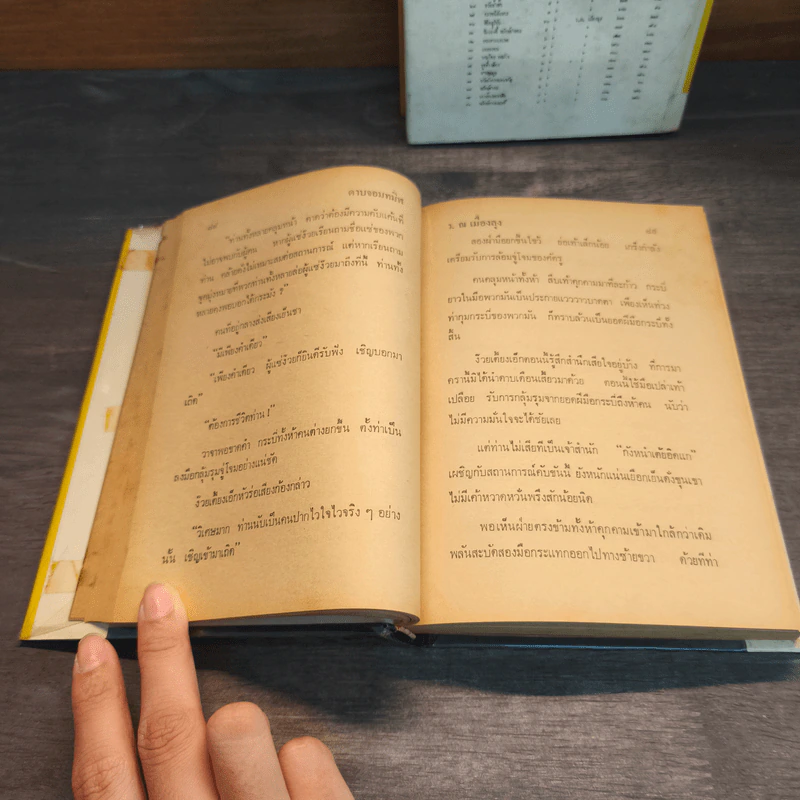 ดาบจอมคมิฬ
๔๘
"ท่านทั้งหลายคลุมหน้า คาดว่าต้องมีความคับแค้นที่
ไม่อาจพบกับผู้คน หากผู้แซ่ง้วยเรียนถามชื่อแซ่ของพวก
ท่าน คล้ายดังไม่เหมาะสมต่อสถานการณ์ แต่หากเรียนถาม
จุดมุ่งหมายที่พวกท่านทั้งหลายล่อผู้แซ่ง้วยมาถึงที่นี้ ท่านทั้ง
หลายคงพอบอกได้กระมัง ?"
คนที่อยู่กลางส่งเสียงเย็นชา
"มีเพียงคำเดียว"
"เพียงคำเดียว ผู้แซ่ง้วยก็ยินดีรับฟัง เชิญบอกมา
เถิด"
"ต้องการชีวิตท่าน !"
วาจาพอขาดคำ กระบี่ทั้งห้าคนต่างยกขึ้น ตั้งท่าเป็น
ลงมือกลุ้มรุมจู่โจมอย่างแน่ชัด
ง้วยเตี้ยงเอ็กหัวร่อเสียงก้องกล่าว
"วิเศษมาก ท่านนับเป็นคนปากไวใจไวจริง ๆ อย่าง
นั้น เชิญเข้ามาเถิด"
๖. ณ เมืองลุง
๔๙
สองฝ่ามือยกขึ้นไขว้ ย่อเท้าเล็กน้อย เกร็งกำลัง
เตรียมรับการล้อมจู่โจมของศัตรู
คนคลุมหน้าทั้งห้า สืบเท้าคุกคามมาทีละก้าว กระบี่
ยาวในมือพวกมันเป็นประกายแวววาวบาดตา เพียงเห็นท่วง
ท่ากุมกระบี่ของพวกมัน ก็ทราบล้วนเป็นยอดฝีมือกระบี่ทั้ง
สิ้น
ง้วยเตี้ยงเอ็กตอนนี้รู้สึกสำนึกเสียใจอยู่บ้าง ที่การมา
ครานี้มิได้นำดาบเดือนเสี้ยวมาด้วย ตอนนี้ใช้มือเปล่าเท้า
เปลือย รับการกลุ้มรุมจากยอดฝีมือกระบี่ถึงห้าคน นับว่า
ไม่มีความมั่นใจจะได้ชัยเลย
แต่ท่านไม่เสียทีเป็นเจ้าสำนัก "กังหนำเต้ยอิดแก"
เผชิญกับสถานการณ์คับขันนี้ ยังหนักแน่นเยือกเย็นดังขุนเขา
ไม่มีเค้าหวาดหวั่นพรั่งสักน้อยนิด
พอเห็นฝ่ายตรงข้ามทั้งห้าคุกคามเข้ามาใกล้กว่าเดิม
พลันสะบัดสองมือกระแทกออกไปทางซ้ายขวา ด้วยทีท่า